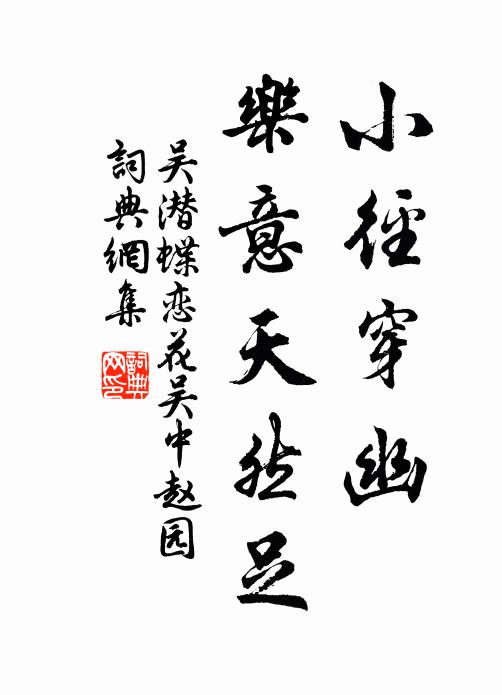 小徑穿幽
樂意天然足
吴潜蝶恋花吴中赵园
詞典網集
詞典網印